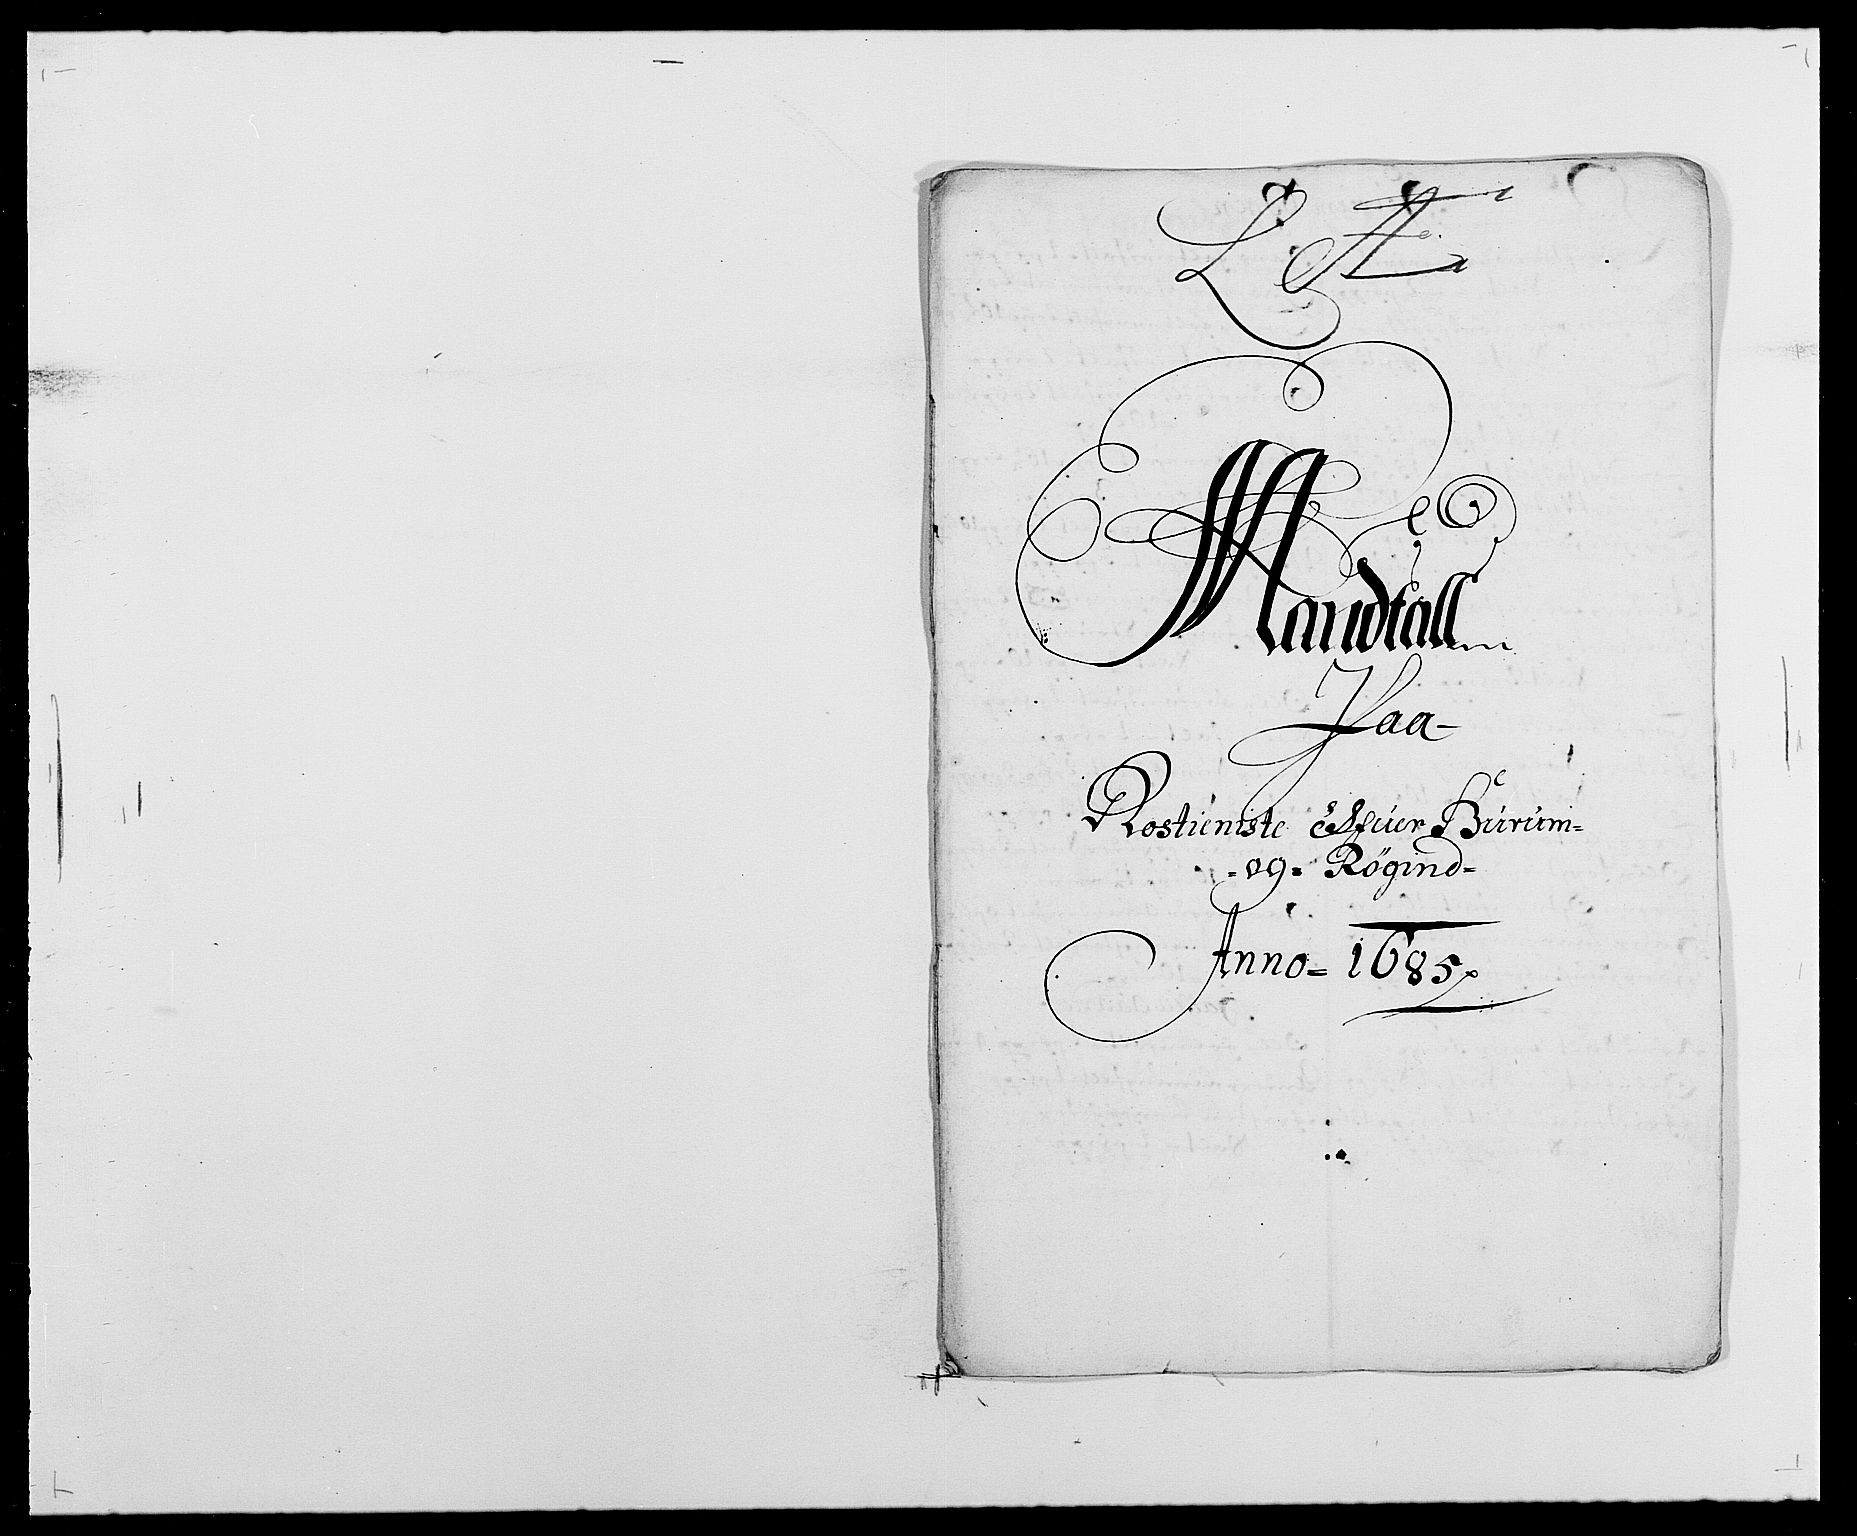 L A
Mandtall
Paa
Rostieniste Ofuer Burum=
=og= Rögind=
Anno= 1685